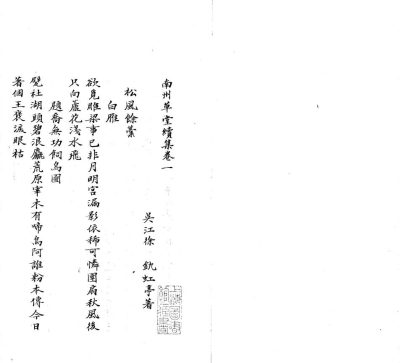 南州草堂續集卷一
吳江徐 釚虹亭著
松風餘籟
白雁
欲覓雎梁事已非月明宮漏影依稀可憐團扇秋風後
只向蘆花淺水飛
題喬無功飼烏圖
甓社湖頭碧浪麤荒原寒木有啼烏阿誰粉本傳今日
著個王裒淚眼枯